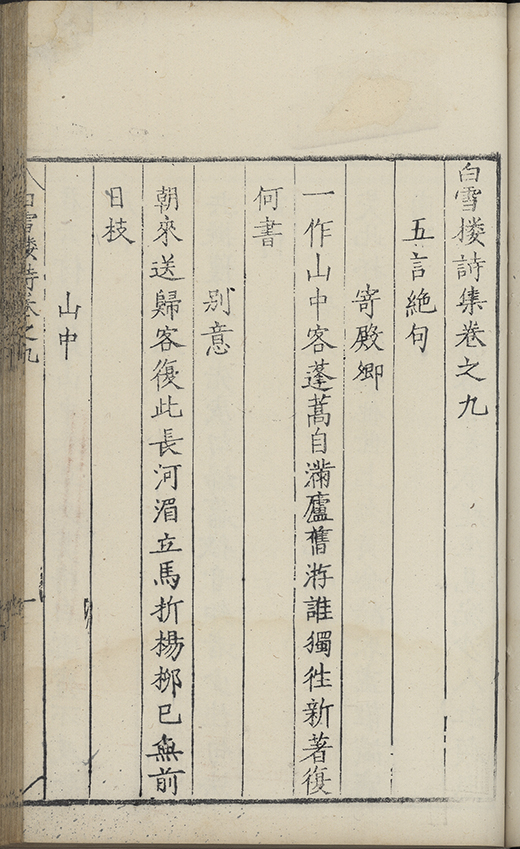 白雪樓詩集卷之九
五言絶句
寄殿卿
一作山中客蓬蒿自滿廬舊游誰獨徃新著復
何書
别意
朝來送歸客復此長河湄立馬折楊桺巳無前
日枝
山中
白雪樓詩卷之九